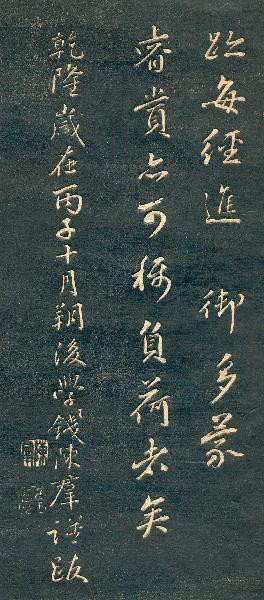 跋每經進 御多蒙
睿賞亦可稱負荷者矣
乾隆歲在丙子十月朔後學錢陳羣謹跋